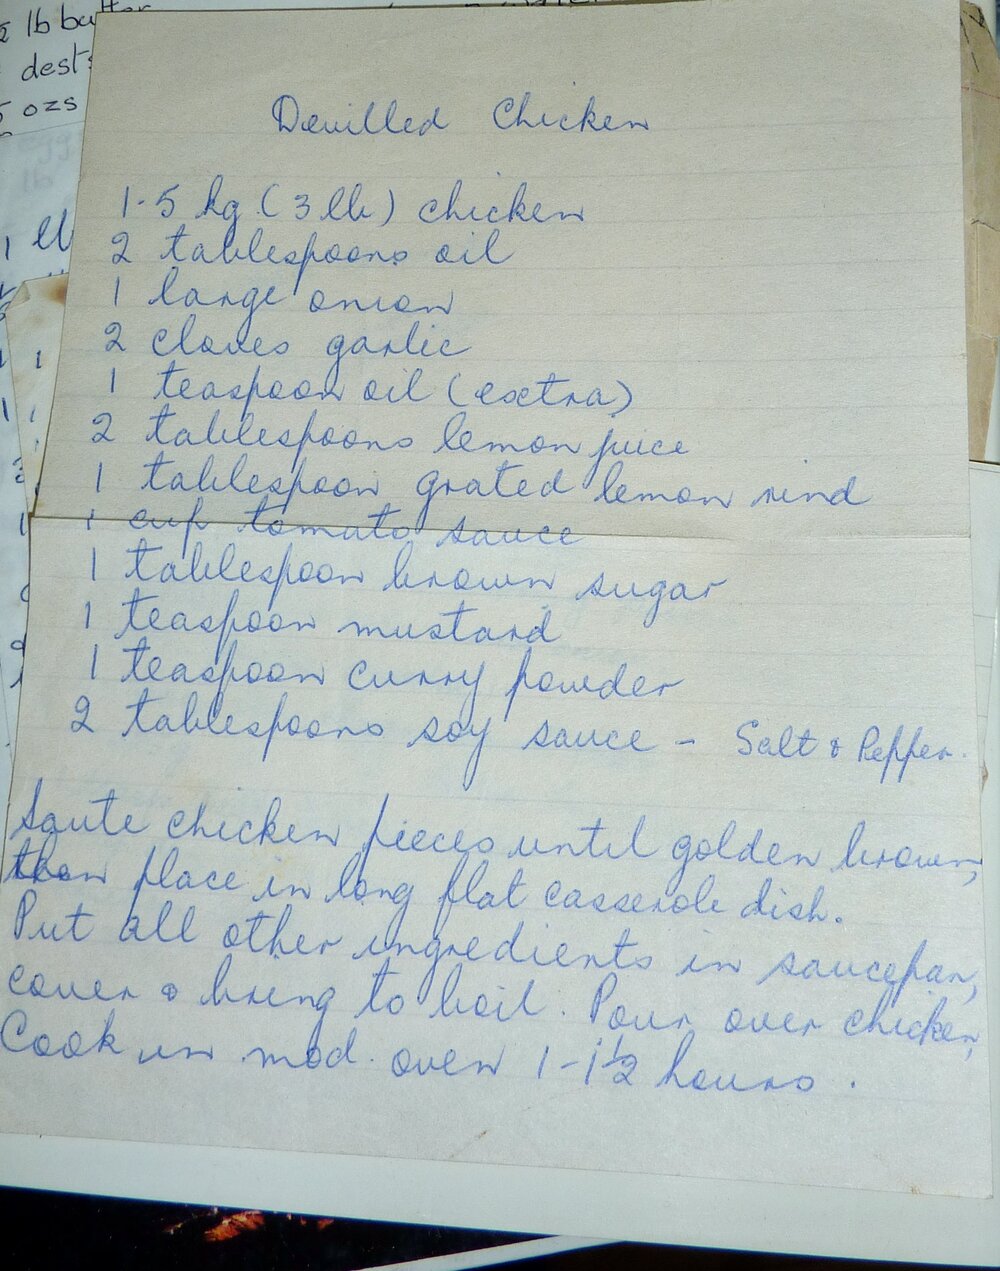 lb butter
dests
ozs
Devilled Chicken
1-5 kg (3 lb) chicken
2 tablespoons oil
1 large onion
2 cloves garlic
1 teaspoon oil (extra)
2 tablespoons lemon juice
1 tablespoon grated lemon rind
1 cup tomato sauce
1 tablespoon brown sugar
1 teaspoon mustard
1 teaspoon curry powder
2 tablespoons soy sauce - Salt & Pepper.
Saute chicken pieces until golden brown,
then place in long flat casserole dish.
Put all other ingredients in saucepan,
cover & bring to boil. Pour over chicken,
Cook in mod. oven 1-1½ hours.